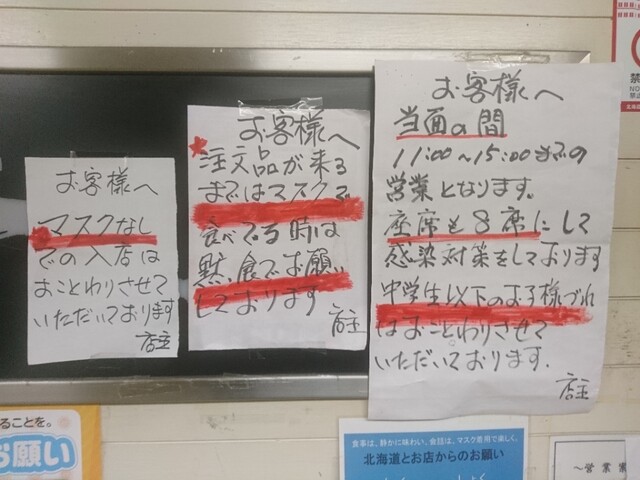 お客様へ
マスクなし
での入店は
おことわりさせて
いただいております
店主
お客様へ
★注文品が来る
まではマスクで
食べてる時は
黙食でお願い
しております
店主
お客様へ
当面の間
11:00~15:00までの
営業となります。
座席も8席にして
感染対策をしております
中学生以下のお子様づれ
はおことわりさせて
いただいております.
店主
ることを。
お願い
食事は、静かに味わい、会話は、マスク着用で楽しく。
北海道とお店からのお願い
~営業
禁
NO